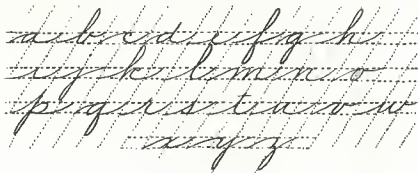 a b c d e f g h
i j k l m n o
p q r s t u v w
x y z